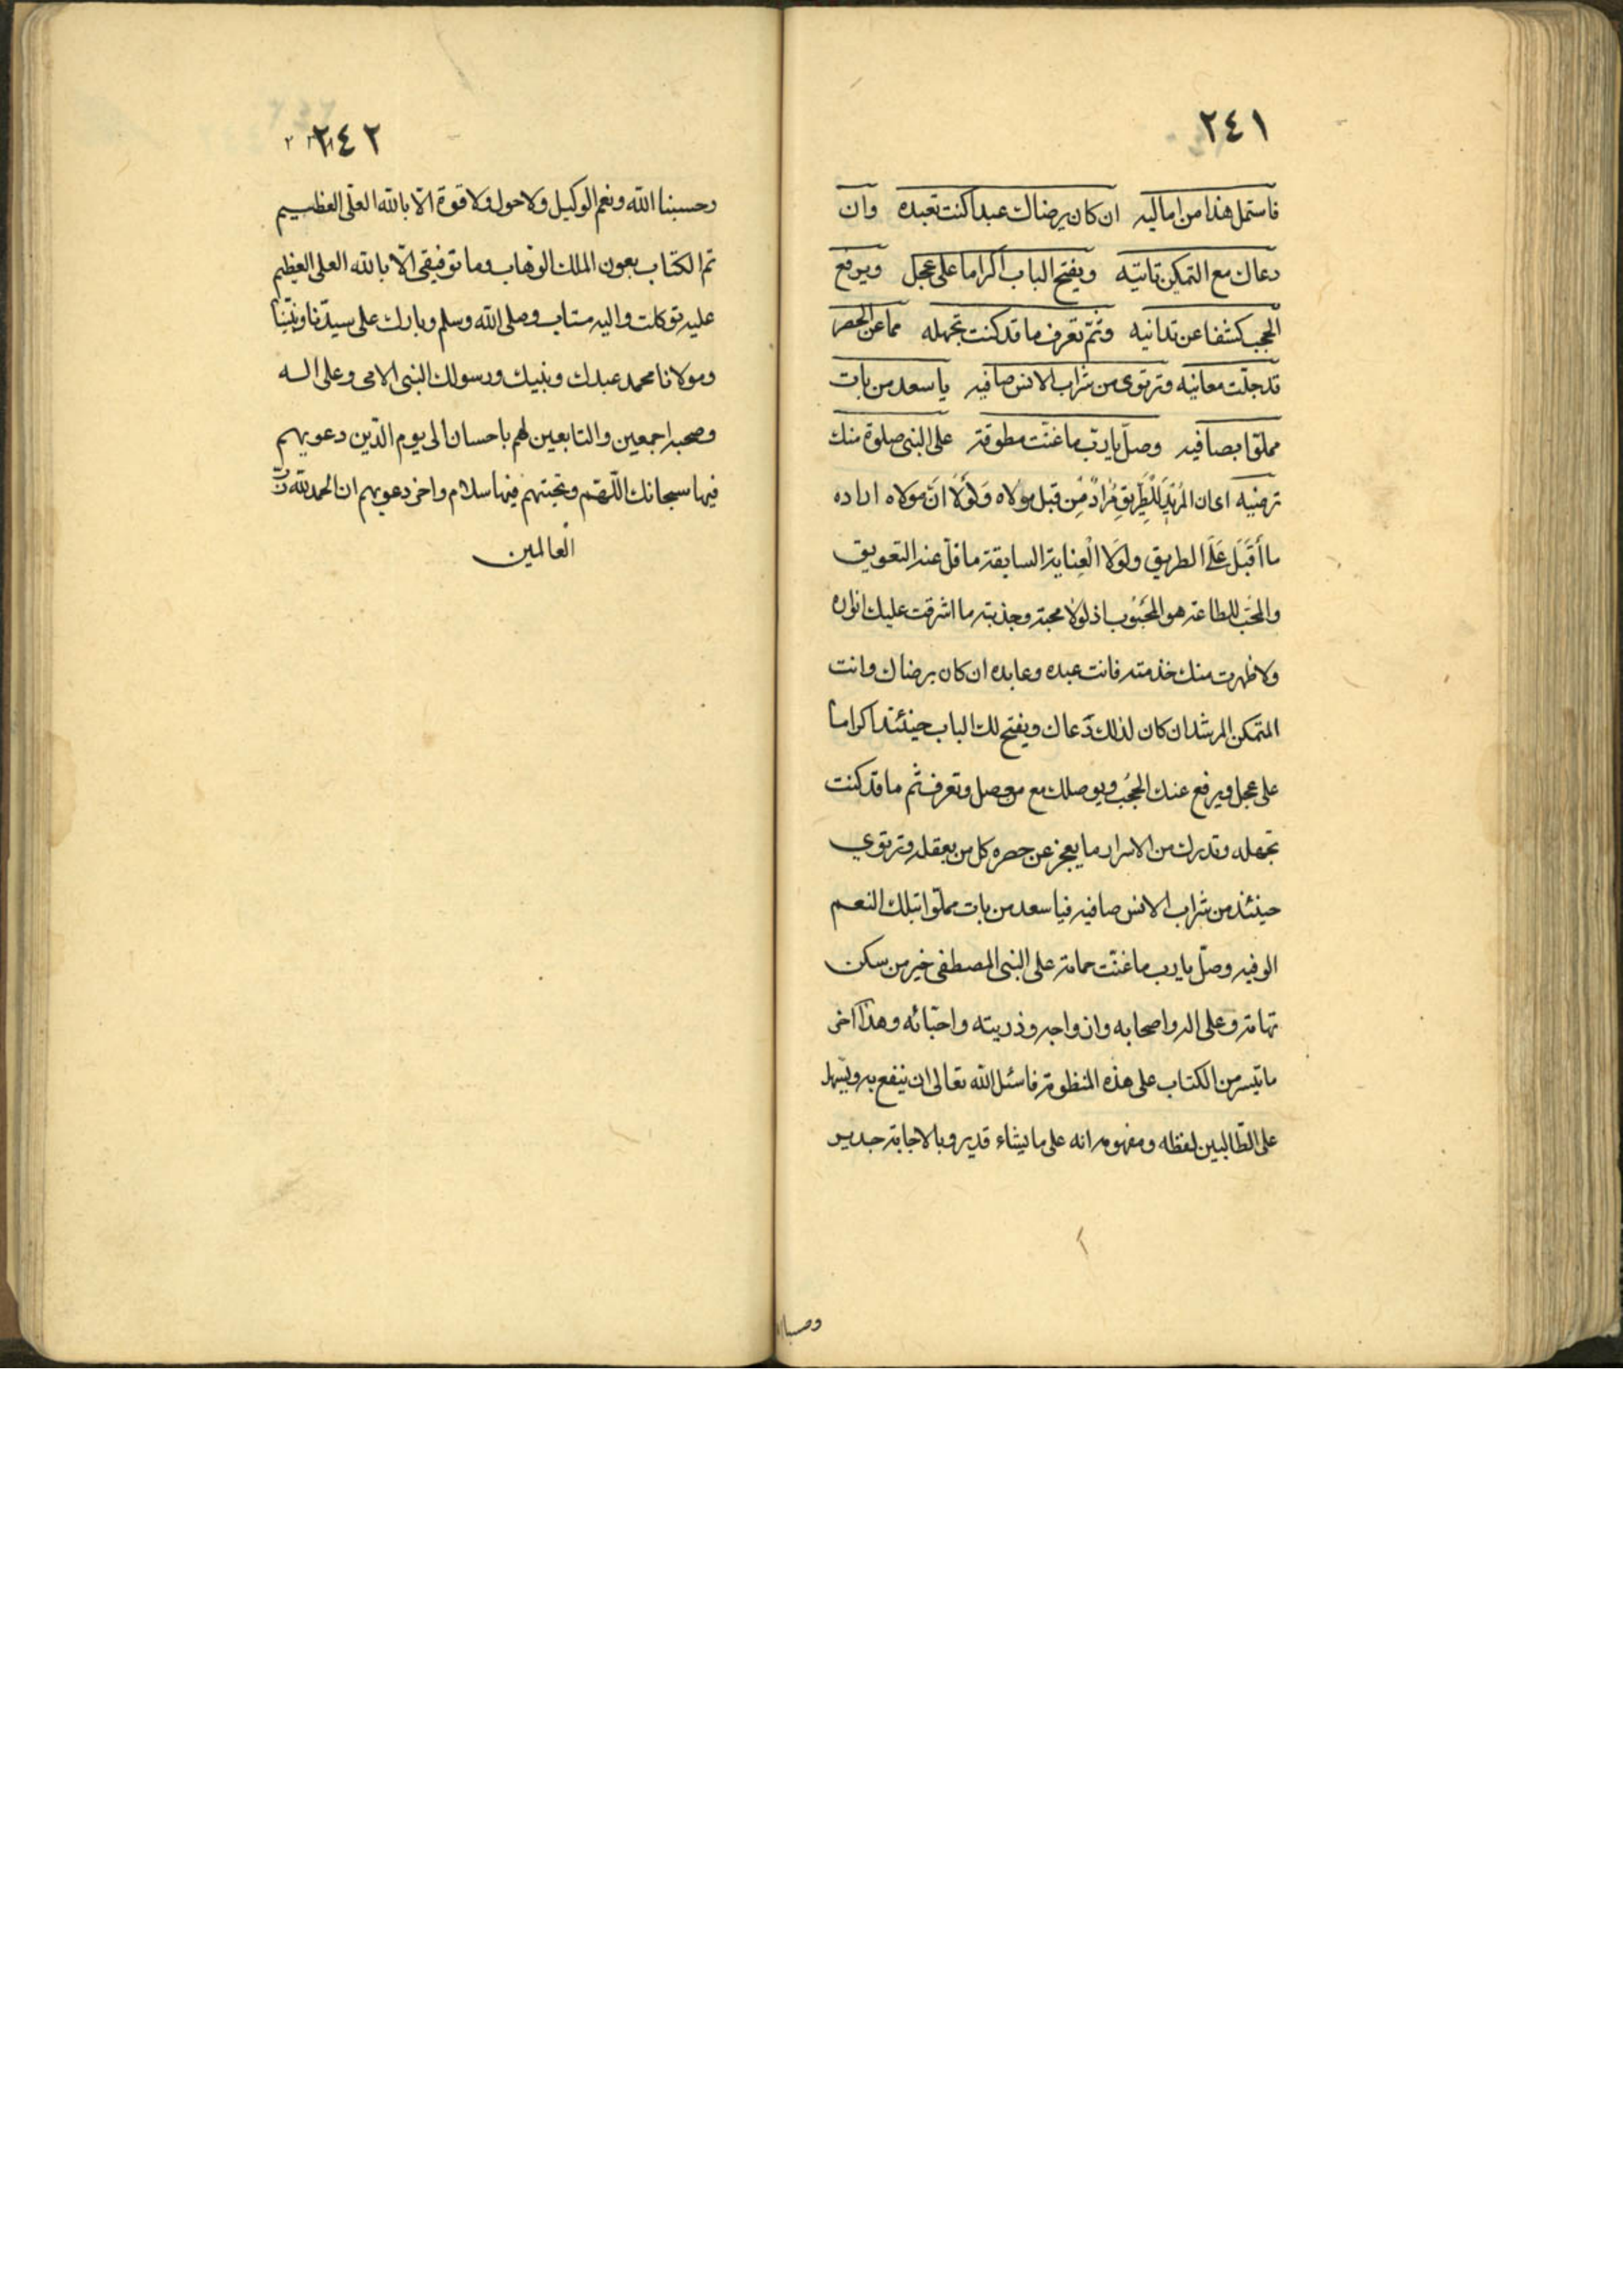 ٢٤١
فاستمل هذا من اماليه ان كان يرضاك عبدا كنت تعبده وان
دعاك مع التمكين تاتيه ويفتح الباب اكراما على عجل ويرفع
الحجب كشفا عن تدانيه وثم تعرف ما قد كنت تجهله مما عن الحصر
قد جلت معانيه وترتوى من شراب الانس صافيه يا سعد من بات
مملوا بصافيه وصل يا رب ما غنت مطوقة على النبى صلوة منك
ترضيه اى ان المريد للطريق مراد من قبل مولاه ولولا ان مولاه اراده
ما أقبل على الطريق ولولا العناية السابقة ما قل عنه التعويق
والمحب للطاعة هو المحبوب اذ لولا محبته وجذبته ما اشرقت عليك انواره
ولا ظهرت منك خدمته فانت عبده وعابده ان كان يرضاك وانت
المتمكن المرشد ان كان لذلك دعاك ويفتح لك الباب حينئذ اكراما
على عجل ويرفع عنك الحجب ويوصلك مع من وصل وتعرف ثم ما قد كنت
تجهله وتدرك من الاسرار ما يعجز عن حصره كل من يعقله وترتوي
حينئذ من شراب الانس صافيه فيا سعد من بات مملوا بتلك النعم
الوفيه وصل يا رب ما غنت حمامة على النبى المصطفى خير من سكن
تهامة وعلى اله واصحابه وازواجه وذريته واحبائه وهذا اخر
ما تيسر من الكتاب على هذه المنظومة فاسئل الله تعالى ان ينفع به ويسهل
على الطالبين لفظه ومفهومه انه على ما يشاء قدير وبالاجابة جدير
٢٤٢
وحسبنا الله ونعم الوكيل ولا حول ولا قوة الا بالله العلى العظيم
تم الكتاب بعون الملك الوهاب وما توفيقى الا بالله العلى العظيم
عليه توكلت واليه متاب وصلى الله وسلم وبارك على سيدنا ونبينا
ومولانا محمد عبدك ونبيك ورسولك النبى الامى وعلى اله
وصحبه اجمعين والتابعين لهم باحسان الى يوم الدين دعويهم
فيها سبحانك اللهم وتحيتهم فيها سلام واخر دعويهم ان الحمد لله رب
العالمين